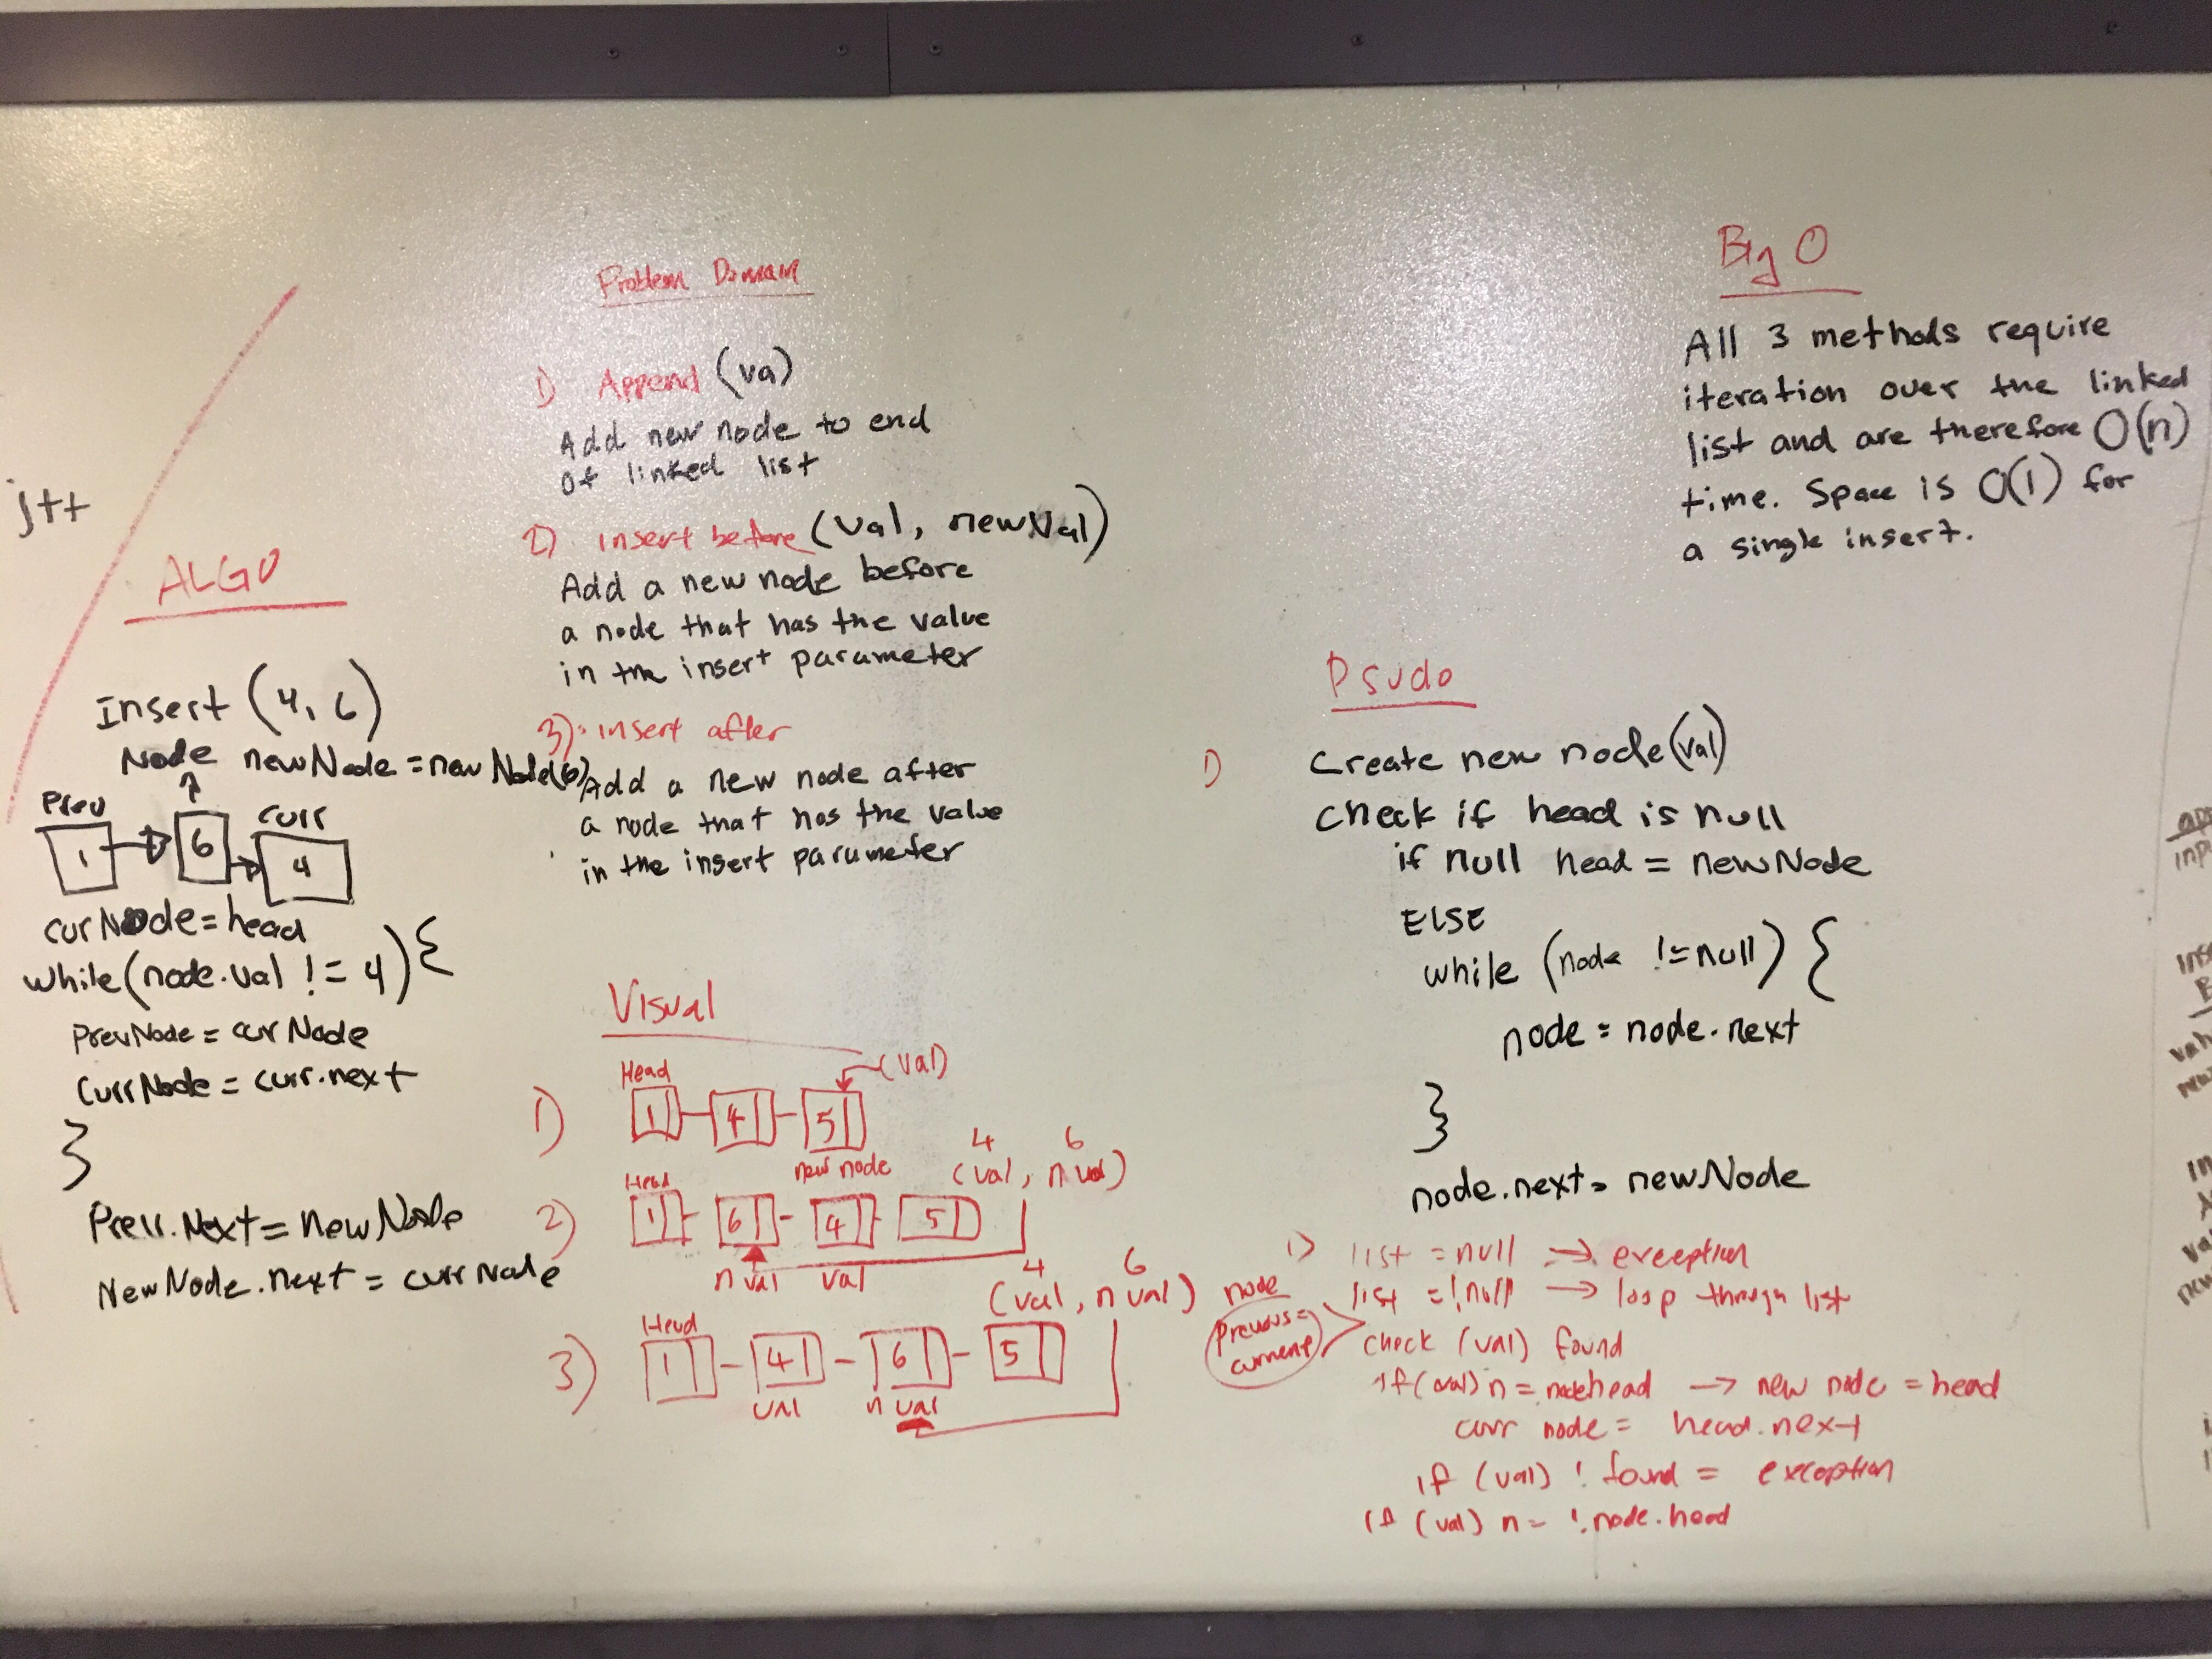 j++
ALGO
Insert (4, 6)
Node newNode = new Node(6)
Prev
curr
1
6
4
curNode = head
while(node.val != 4) {
PrevNode = curNode
CurrNode = curr.next
}
Prev.Next = newNode
NewNode.next = currNode
Problem Domain
1) Append (va)
Add new node to end
of linked list
2) insert before (val, newVal)
Add a new node before
a node that has the value
in the insert parameter
3) insert after
Add a new node after
a node that has the value
in the insert parameter
Visual
(val)
Head
1) 1 4 5
new node
4 6
(val, n val)
Head
2) 1 6 4 5
n val val
4 6
(val, n val)
Head
3) 1 4 6 5
val n val
Big O
All 3 methods require
iteration over the linked
list and are therefore O(n)
time. Space is O(1) for
a single insert.
Psudo
1) Create new node(val)
check if head is null
if null head = newNode
ELSE
while (node != null) {
node = node.next
}
node.next = newNode
1) list = null → exception
list = !null → loop through list
node
previous =
current
check (val) found
if (val) n = node head → new node = head
curr node = head.next
if (val) ! found = exception
if (val) n = !.node.head